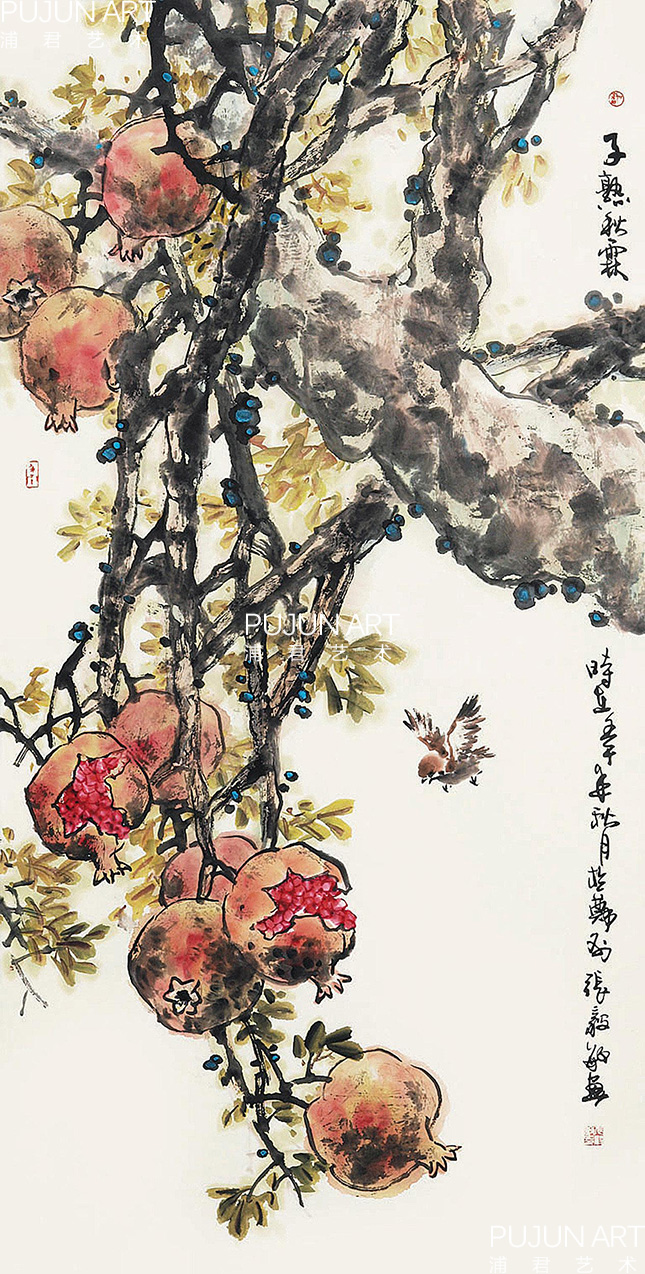 PUJUN ART
浦君艺术
子熟秋霖
PUJUN ART
浦君艺术
時在午年秋月於張毅敏畫
PUJUN ART
浦君艺术